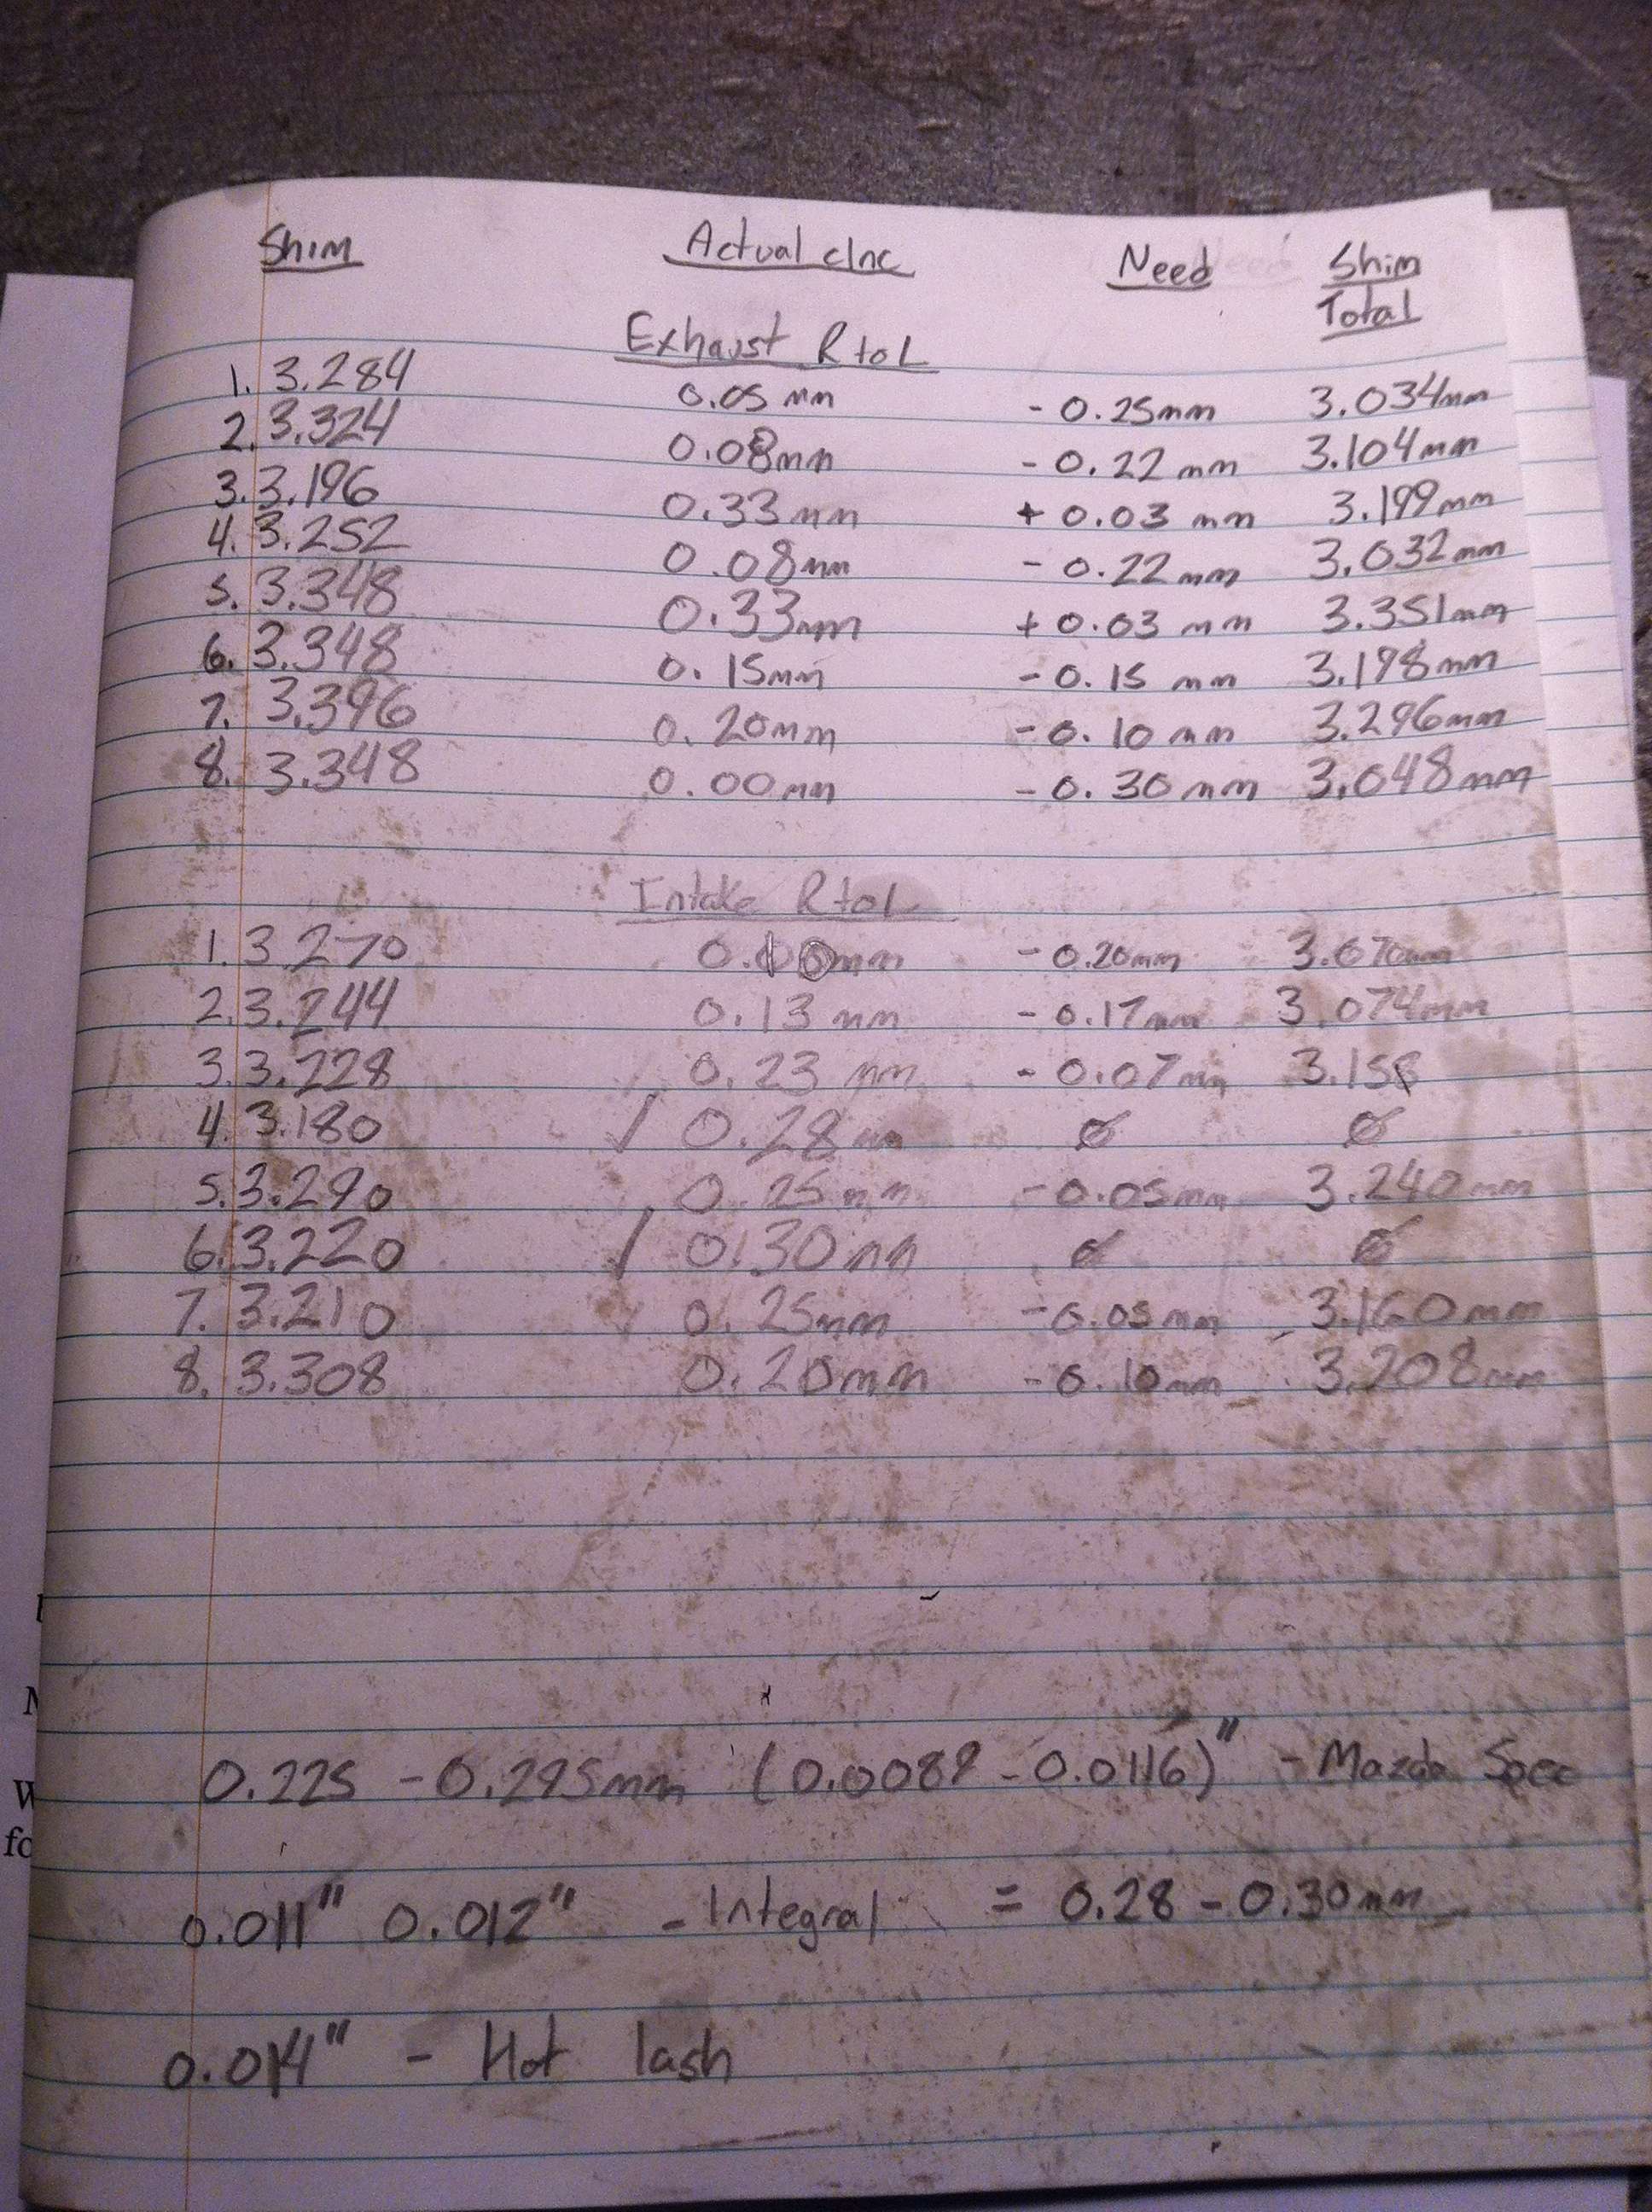 Shim Actual clnc Need Shim
Total
Exhaust R to L
1. 3.284 0.05 mm - 0.25mm 3.034mm
2. 3.324 0.08mm - 0.22 mm 3.104mm
3. 3.196 0.33 mm + 0.03 mm 3.199mm
4. 3.252 0.08mm - 0.22 mm 3.032mm
5. 3.348 0.33mm + 0.03 mm 3.351mm
6. 3.348 0.15mm - 0.15 mm 3.198mm
7. 3.396 0.20mm - 0.10 mm 3.296mm
8. 3.348 0.00mm - 0.30 mm 3.048mm
Intake R to L
1. 3.270 0.10mm - 0.20mm 3.070mm
2. 3.244 0.13 mm - 0.17mm 3.074mm
3. 3.228 0.23 mm - 0.07mm 3.158
4. 3.180 ✓ 0.28mm Ø Ø
5. 3.290 0.25mm - 0.05mm 3.240mm
6. 3.220 ✓ 0.30mm Ø Ø
7. 3.210 0.25mm - 0.05mm 3.160mm
8. 3.308 0.20mm - 0.10mm 3.208mm
0.225 - 0.295mm (0.0089 - 0.0116)" - Mazda Spec
0.011" 0.012" - Integral = 0.28 - 0.30mm
0.014" - Hot lash